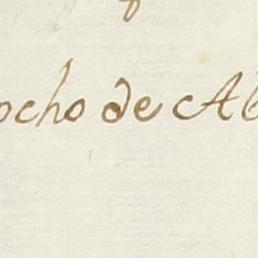 ocho de Ab